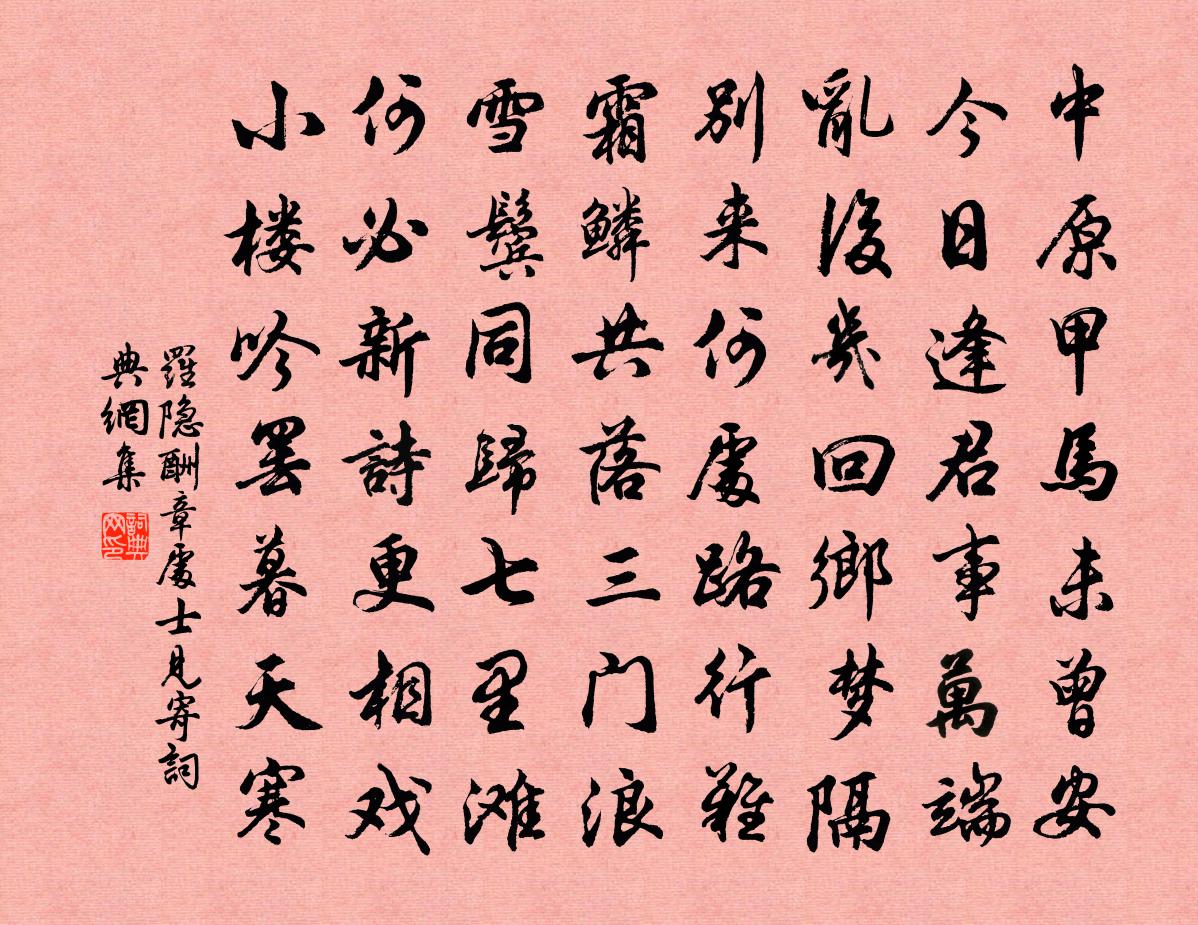 中原甲馬未曾安
今日逢君事萬端
亂後幾回鄉梦隔
別来何處路行難
霜鱗共落三门浪
雪鬢同歸七里滩
何必新詩更相戏
小楼吟罢暮天寒
羅隐酬章處士見寄詞
典網集
詞典网印